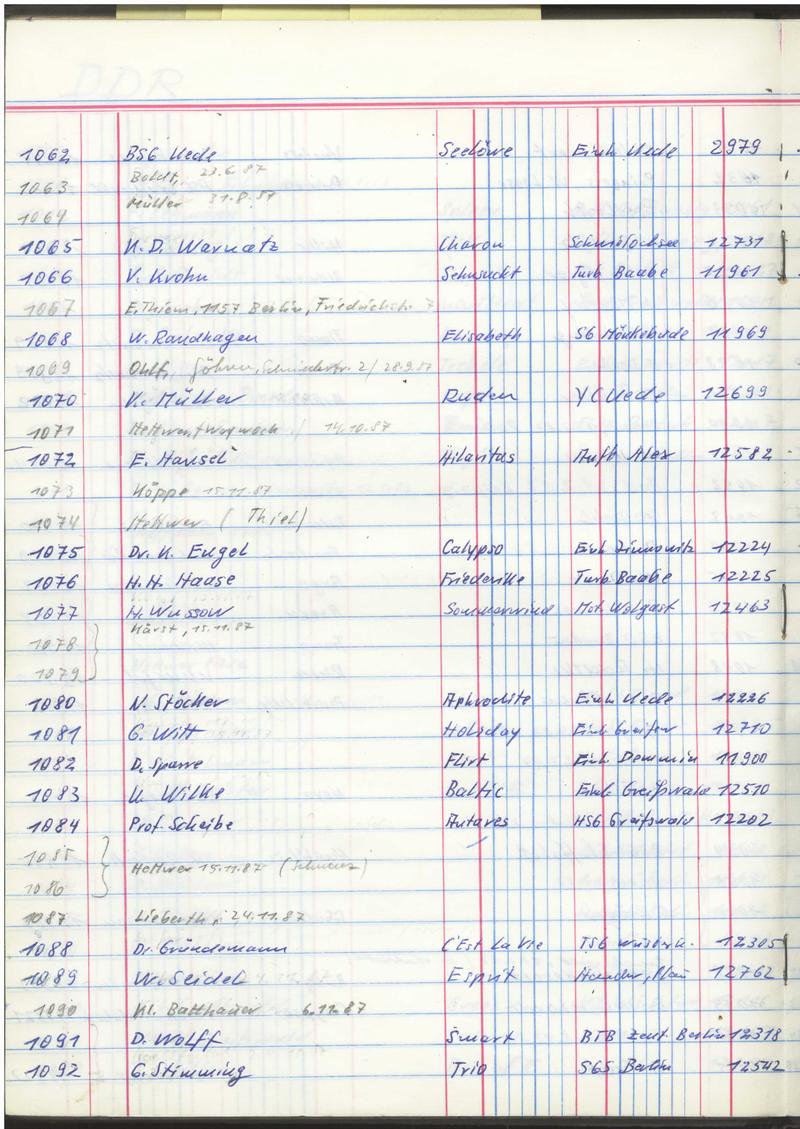 DDR
1062 BSG Uede Seelöwe Einh Uede 2979
1063 Boldt, 23.6.87
1064 Müller 31.8.87
1065 K.D. Warnatz Charon Schmöl 12731
1066 V. Krohn Sehnsucht Turb Baabe 11961
1067 E. Thiem, 1157 Berlin, Friedrichstr. 7
1068 W. Randhagen Elisabeth SG Mönkebude 11969
1069 Ohlf, Göhren, Schniederstr. 2/ 28.9.87
1070 K. Müller Ruden YC Uede 12699
1071 14.10.87
1072 E. Hansel Hilaritas Aufb Alex 12582
1073 Köppe 15.11.87
1074 Hettwer (Thiel)
1075 Dr. K. Engel Calypso Einh Zinnowitz 12224
1076 H.H. Haase Friederike Turb. Baabe 12225
1077 H. Wussow Sommerwind Mot. Wolgast 12463
1078 15.11.87
1079
1080 N. Stöcker Aphrodite Einh Uede 12226
1081 G. Witt Holiday Einh Greifsw 12710
1082 D. Sparre Flirt Einh. Demmin 11900
1083 U. Wilke Baltic Einh Greifswald 12510
1084 Prof. Scheibe Antares HSG Greifswald 12202
1085 Hettwer 15.11.87
1086
1087 Lieberth, 24.11.87
1088 Dr. Gründemann C'Est La Vie TSG 12305
1089 W. Seidel Esprit 12762
1090 Kl. Batthauer 6.11.87
1091 D. Wolff Smart BTB Zent. Berlin 12318
1092 G. Stimming Trio SGS Berlin 12542